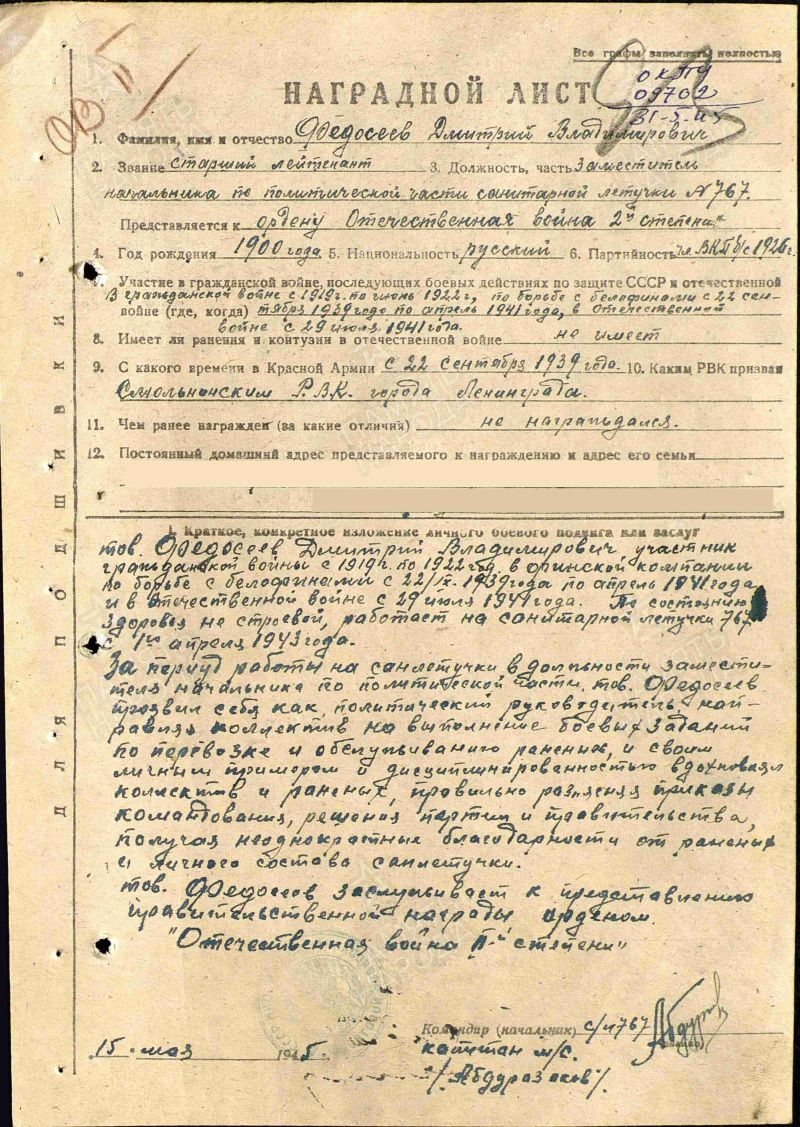 Все графы заполнять полностью
ОВ II
ОКПУ
09702
31-5-45
НАГРАДНОЙ ЛИСТ
1. Фамилия, имя и отчество Федосеев Дмитрий Владимирович
2. Звание старший лейтенант 3. Должность, часть заместитель
начальника по политической части санитарной летучки № 767.
Представляется к ордену Отечественная война 2й степени
4. Год рождения 1900 года 5. Национальность русский 6. Партийность чл. ВКП(б) с 1926 г.
Участие в гражданской войне, последующих боевых действиях по защите СССР и отечественной
В гражданской войне с 1919 г. по июнь 1922 г., по борьбе с белофинами с 22 сен-
войне (где, когда) тября 1939 года по апрель 1941 года, в Отечественной
войне с 29 июля 1941 года.
8. Имеет ли ранения и контузии в отечественной войне не имеет
9. С какого времени в Красной Армии с 22 сентября 1939 года. 10. Каким РВК призван
Смольнинским Р.В.К. города Ленинграда.
11. Чем ранее награжден (за какие отличия) не награждался.
12. Постоянный домашний адрес представляемого к награждению и адрес его семьи
I. Краткое, конкретное изложение личного боевого подвига или заслуг
тов. Федосеев Дмитрий Владимирович, участник
гражданской войны с 1919 г. по 1922 год, в финской компании
по борьбе с белофинами с 22/IX-1939 года по апрель 1941 года
и в Отечественной войне с 29 июля 1941 года. По состоянию
здоровья не строевой, работает на санитарной летучки 767
с 1го апреля 1943 года.
За период работы на санлетучки в должности замести-
теля начальника по политической части, тов. Федосеев
проявил себя как политический руководитель, нап-
равляя коллектив на выполнение боевых заданий
по перевозке и обслуживанию раненых, и своим
личным примером и дисциплинированностью вдохновлял
колектив и раненых, правильно разъясняя приказы
командования, решения партии и правительства,
получая неоднократные благодарности от раненых
и личного состава санлетучки.
тов. Федосеев заслуживает к представлению
правительственной награды орденом.
"Отечественная война II-й степени"
Командир (начальник) с/л 767
15 мая 1945 г. капитан м/с.
/Абдуразаков/
для подшивки